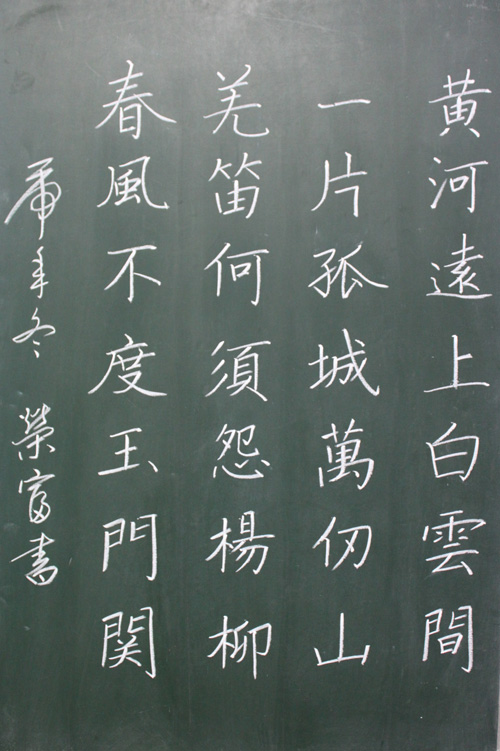 黄河遠上白雲間
一片孤城萬仞山
羌笛何須怨楊柳
春風不度玉門関
虎年冬 榮富書